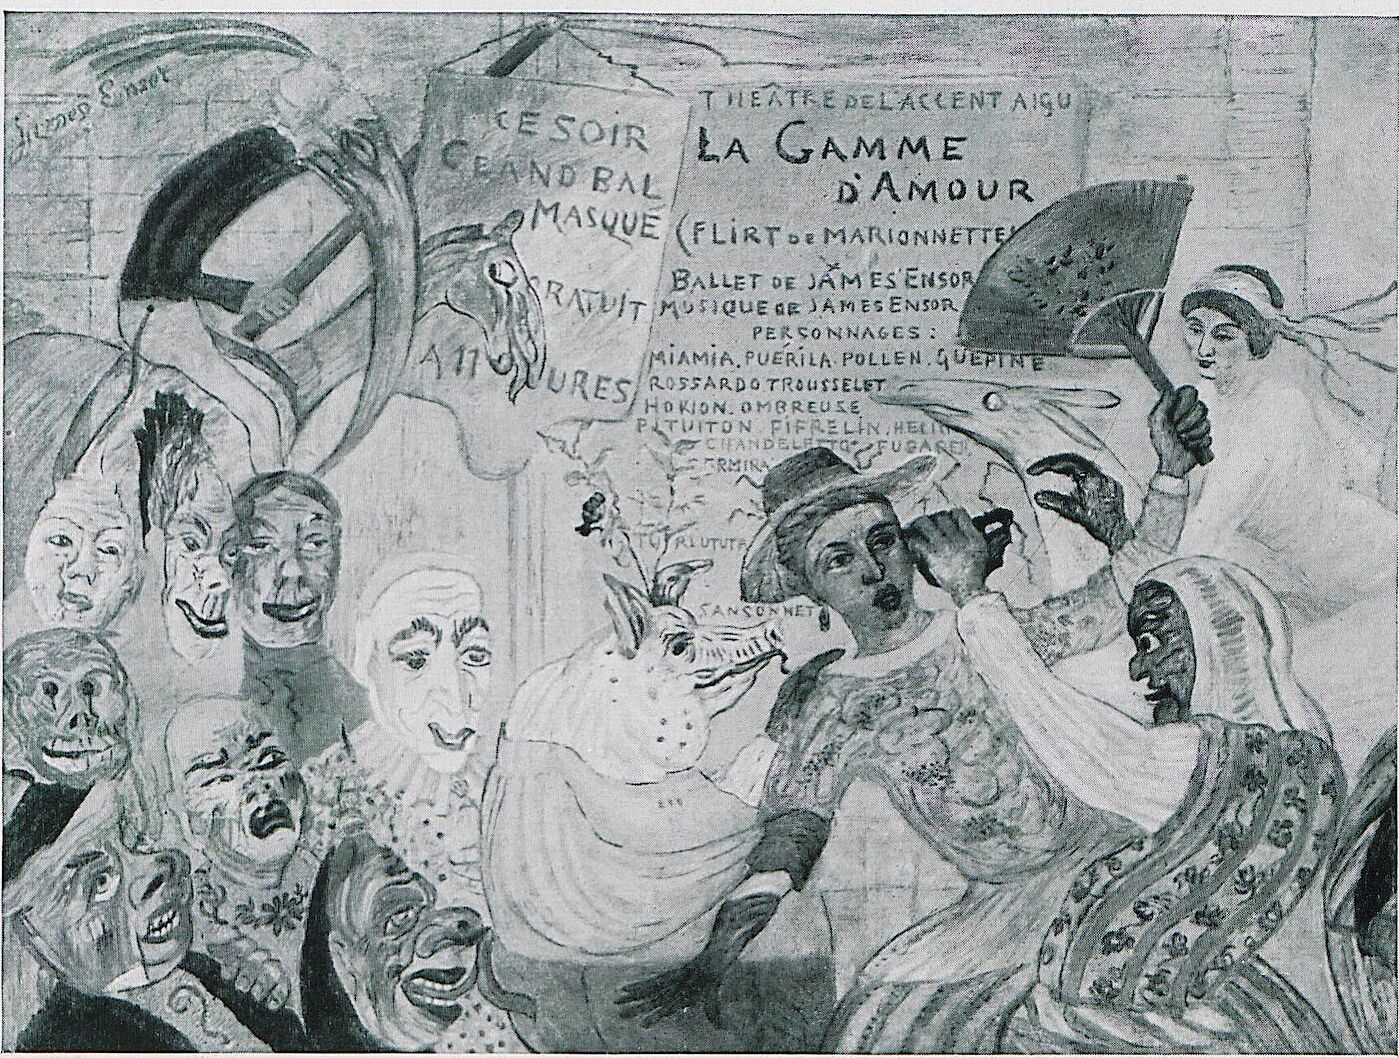 James Ensor
CE SOIR
GRAND BAL
MASQUÉ
GRATUIT
A 11 HEURES
THEÂTRE DE L'ACCENT AIGU
LA GAMME
D'AMOUR
(FLIRT DE MARIONNETTE
BALLET DE JAMES ENSOR
MUSIQUE DE JAMES ENSOR
PERSONNAGES:
MIAMIA. PUERILA. POLLEN. GUEPINE
ROSSARDO TROUSSELET
HOKION. OMBREUSE
PITUITON FIFRELIN. HELIO
FUGASE
ERMIRA
SANSONNET